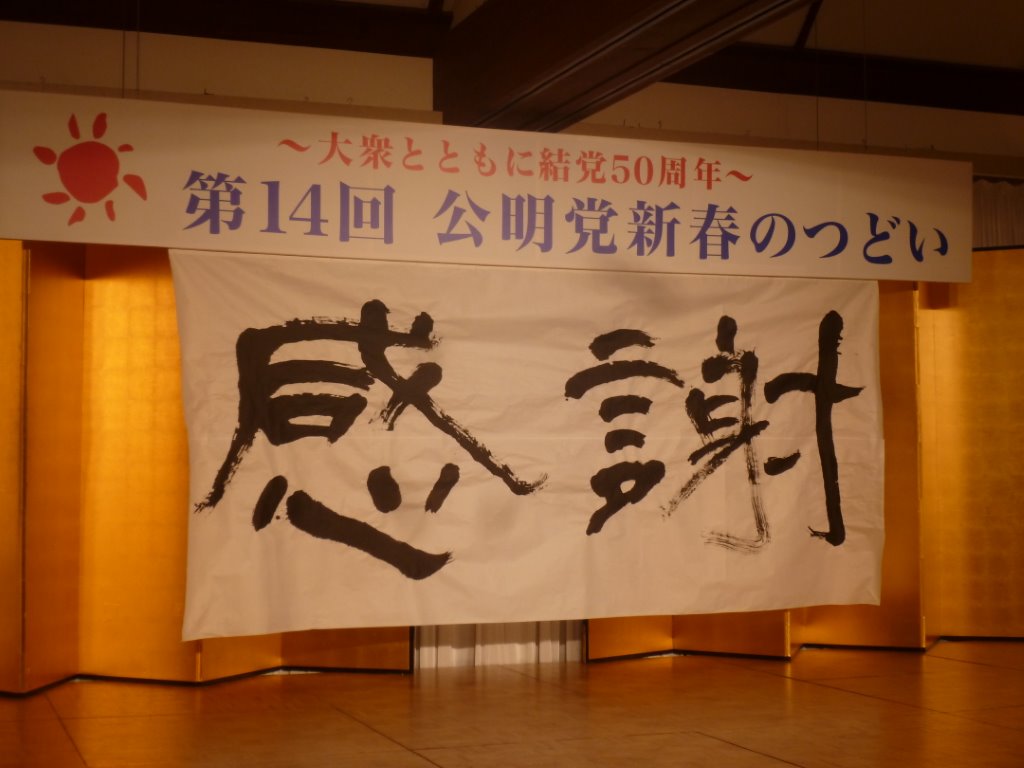 ～大衆とともに結党50周年～
第14回 公明党新春のつどい
感謝